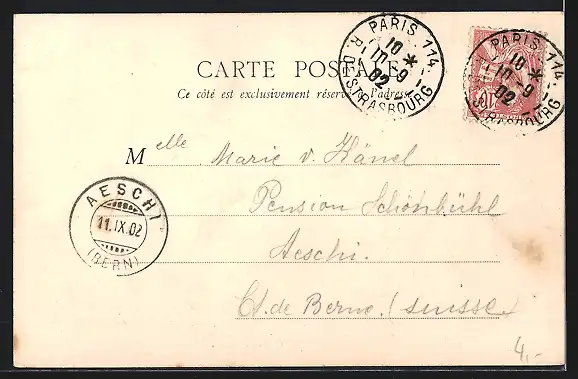 PARIS 114
10 *
10-9
02
R. DE STRASBOURG
PARIS 114
10 *
10-9
02
STRASBOURG
CARTE POSTALE
Ce côté est exclusivement réservé à l'adresse
Melle Marie v. Känel
Pension Schönbühl
Aeschi.
Ct. de Berne (Suisse)
AESCHI
11.IX.02
(BERN)
4,-